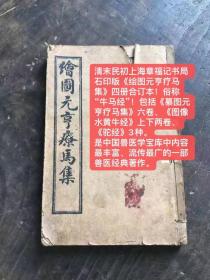 繪圖元亨療馬集
清末民初上海章福记书局
石印版《绘图元亨疗马
集》四册合订本！俗称
“牛马经”！包括《纂图元
亨疗马集》六卷、《图像
水黄牛经》上下两卷、
《驼经》3种。
是中国兽医学宝库中内容
最丰富、流传最广的一部
兽医经典著作。